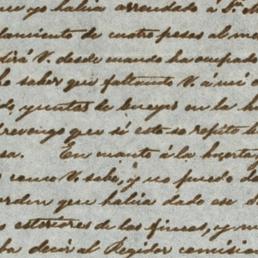 que yo habia arrendado á Dn.
damiento de cuatro pesos al m
dirá V. desde cuando ha ocupado
ho saber que faltando V. á mi
do, yuntas de bueyes en la h
revengo que si esto se repite
sa. En cuanto á la
como V. sabe, y no puedo d
orden que habia dado ese S
s esteriores de las fincas, y
ba decir al Regidor comision